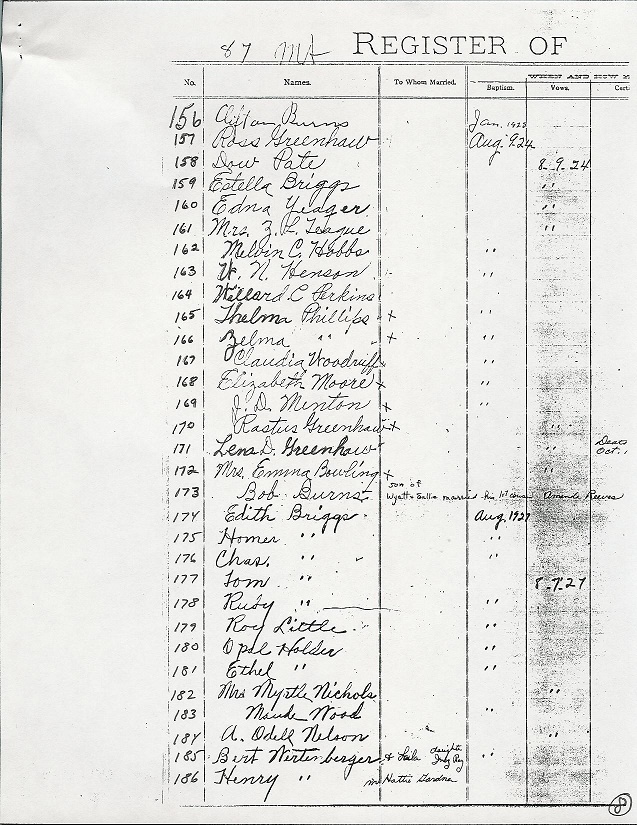 87 REGISTER OF
WHEN AND HOW
No. Names. To Whom Married. Baptism. Vows. Cert
156 Clifton Burns Jan. 1925
157 Ross Greenhaw Aug 9.24
158 Dow Pate 8-9-24
159 Estella Briggs "
160 Edna Yeager "
161 Mrs. Z. L. Teague "
162 Melvin C. Hobbs "
163 W. N. Henson "
164 Willard C Perkins
165 Thelma Phillips + "
166 Zelma " + "
167 Claudia Woodruff + "
168 Elizabeth Moore + "
169 J. D. Minton + "
170 Rastus Greenhaw + "
171 Lena D. Greenhaw " Oct.
172 Mrs. Emma Bowling + "
173 Bob Burns son of
Wyatt & Sallie married his 1st cousin Amanda Reeves
174 Edith Briggs Aug. 1927
175 Homer " "
176 Chas. " "
177 Tom " 8-7-27
178 Rudy " "
179 Roy Little "
180 Opal Holder "
181 Ethel " "
182 Mrs Myrtle Nichols "
183 Maude Wood "
184 A. Odell Nelson "
185 Bert Wertenberger & Leila daughter "
186 Henry " m Hattie Gardner
8